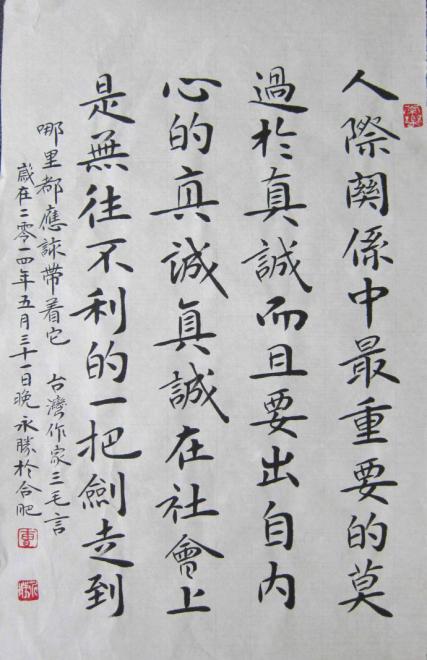 人際関係中最重要的莫
過於真誠而且要出自内
心的真誠真誠在社會上
是無往不利的一把劍走到
哪里都應該帶着它 台灣作家三毛言
歲在二零一四年五月三十一日晚永勝於合肥